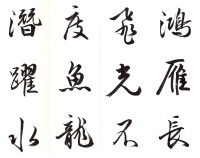 鴻雁長
飛光不
度魚龍
潛躍水